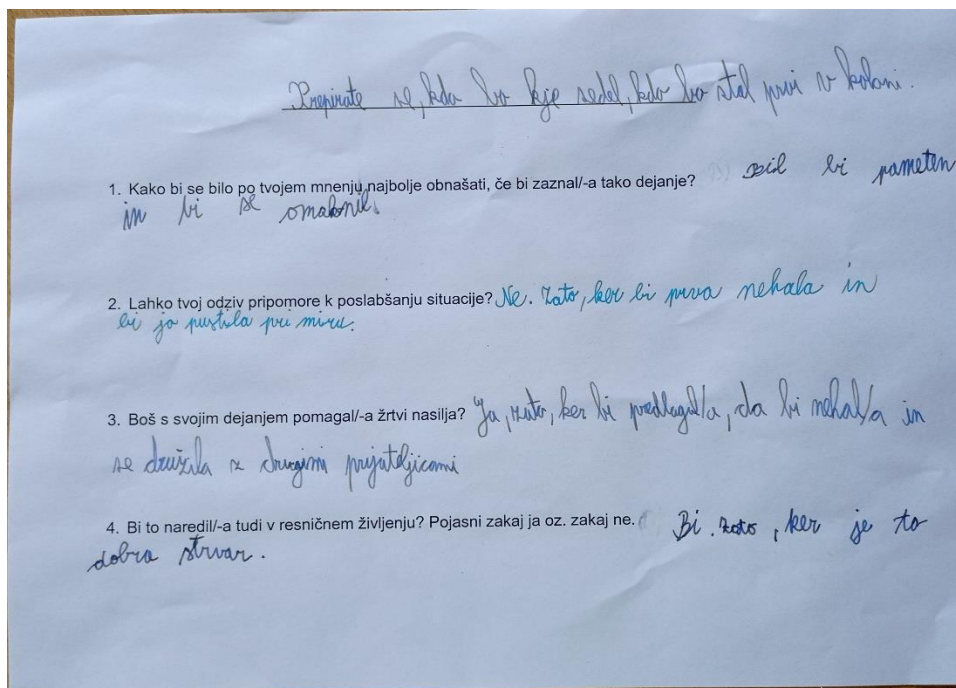 Prepirate se, kdo bo kje sedel, kdo bo stal prvi v koloni.
1. Kako bi se bilo po tvojem mnenju najbolje obnašati, če bi zaznal/-a tako dejanje? bil bi pameten
in bi se omaknil.
2. Lahko tvoj odziv pripomore k poslabšanju situacije? Ne. Zato, ker bi prva nehala in
bi jo pustila pri miru.
3. Boš s svojim dejanjem pomagal/-a žrtvi nasilja? Ja, zato, ker bi predlagal/a, da bi nehal/a in
se družila z drugimi prijateljicami
4. Bi to naredil/-a tudi v resničnem življenju? Pojasni zakaj ja oz. zakaj ne. Bi. zato, ker je to
dobra strvar.